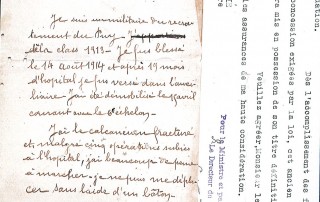 Je suis militaire du recru
tement du Puy
de la class 1913 - Je fus blessé
le 14 Aout 1914 et après 19 mois
d'hopital je fus versé dans l'auxi
liaire j'ai été démobilisé le
courant avec le 6e échelon
J'ai le calcanium fracturé
et malgré cinq opérations subies
à l'hopital, j'ai beaucoup de peine
à marcher - je ne puis me dépla
cer sans l'aide d'un bâton
ination.
Dès l'accomplissement des f
concession exigées par la loi, cet ancien
ra mis en possession de son titre définiti
Veuillez agréer, Monsieur le
s assurances de ma haute considération.
Pour le Ministre et pa
Le Directeur de